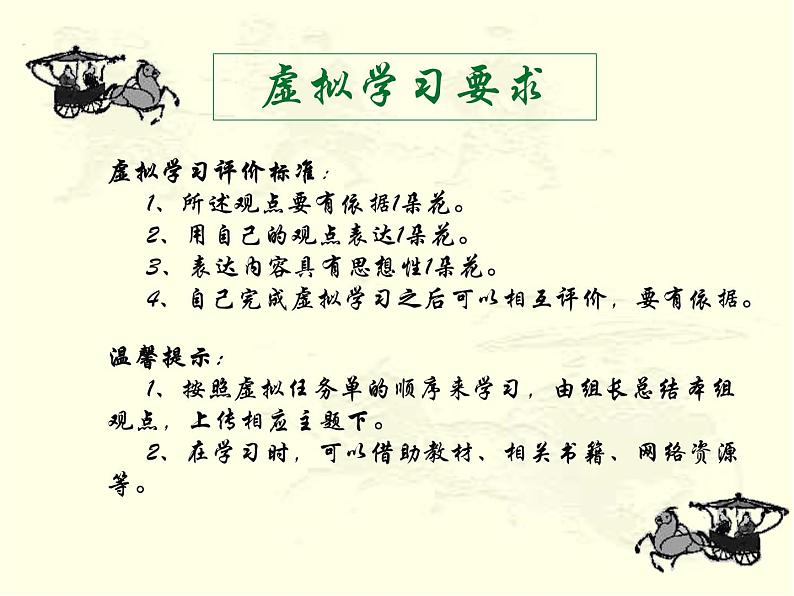 虚拟学习要求
虚拟学习评价标准：
1、所述观点要有依据1朵花。
2、用自己的观点表达1朵花。
3、表达内容具有思想性1朵花。
4、自己完成虚拟学习之后可以相互评价，要有依据。
温馨提示：
1、按照虚拟任务单的顺序来学习，由组长总结本组
观点，上传相应主题下。
2、在学习时，可以借助教材、相关书籍、网络资源
等。